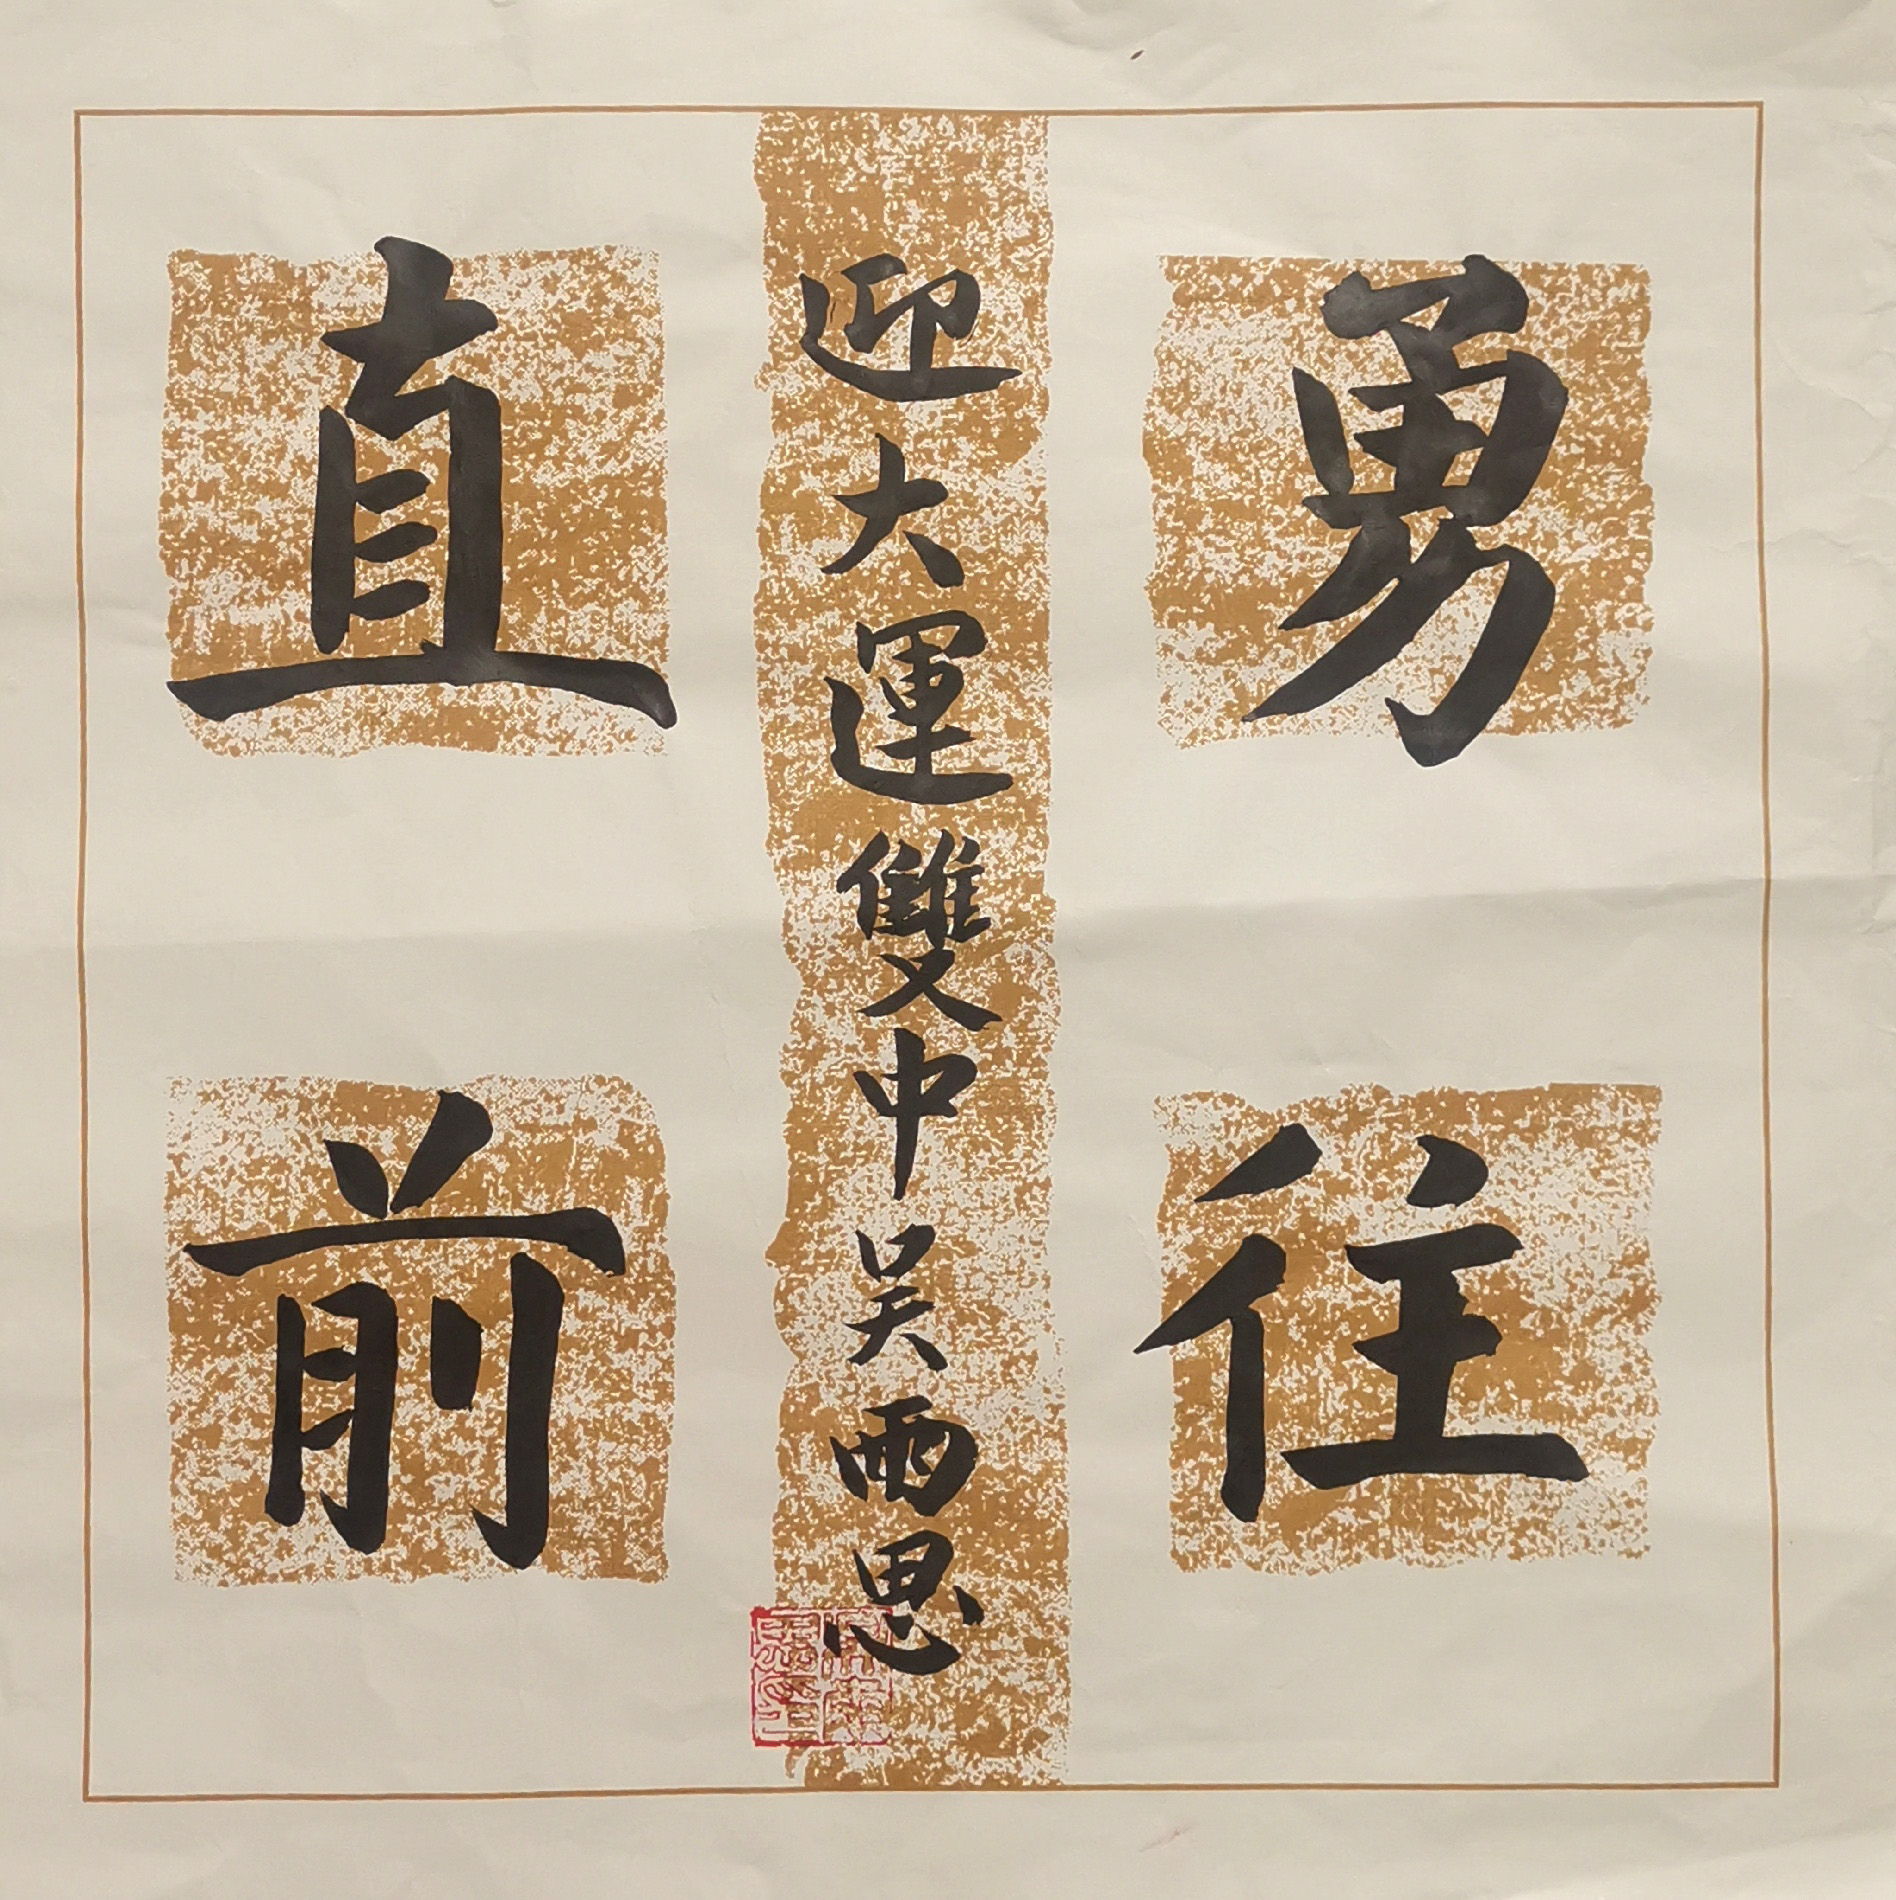 勇往
直前
迎大運雙中吴雨思